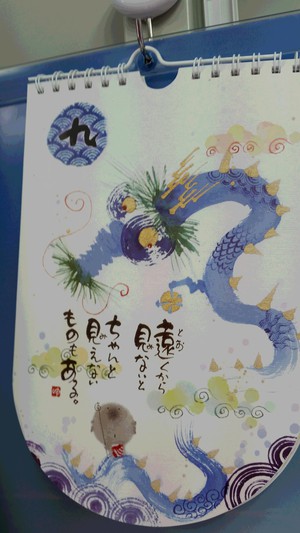 九
遠くから
見ないと
ちゃんと
見えない
ものもある。